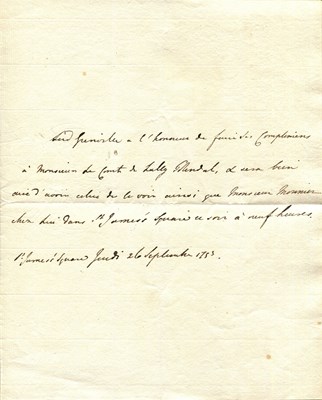 Lord Grenville a l'honneur de faire ses Complimens
à Monsieur le Comte de Lally Tolendal, & sera bien
aise d'avoir celui de le voir ainsi que Monsieur Mounier
chez lui dans St James's Square ce soir à neuf heures.
St James's Square Jeudi 26 Septembre 1793.